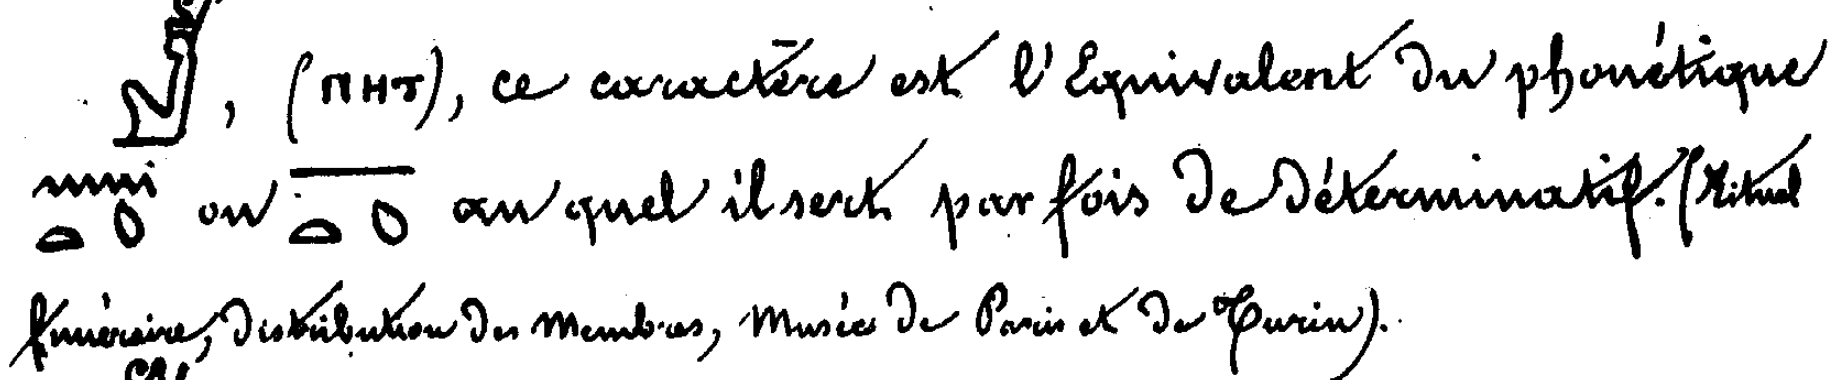 , (ⲠⲎⲦ), ce caractère est l'Equivalent du phonétique
ou au quel il sert par fois de déterminatif. (Rituel
funéraire, distribution des Membres, Musées de Paris et de Turin).